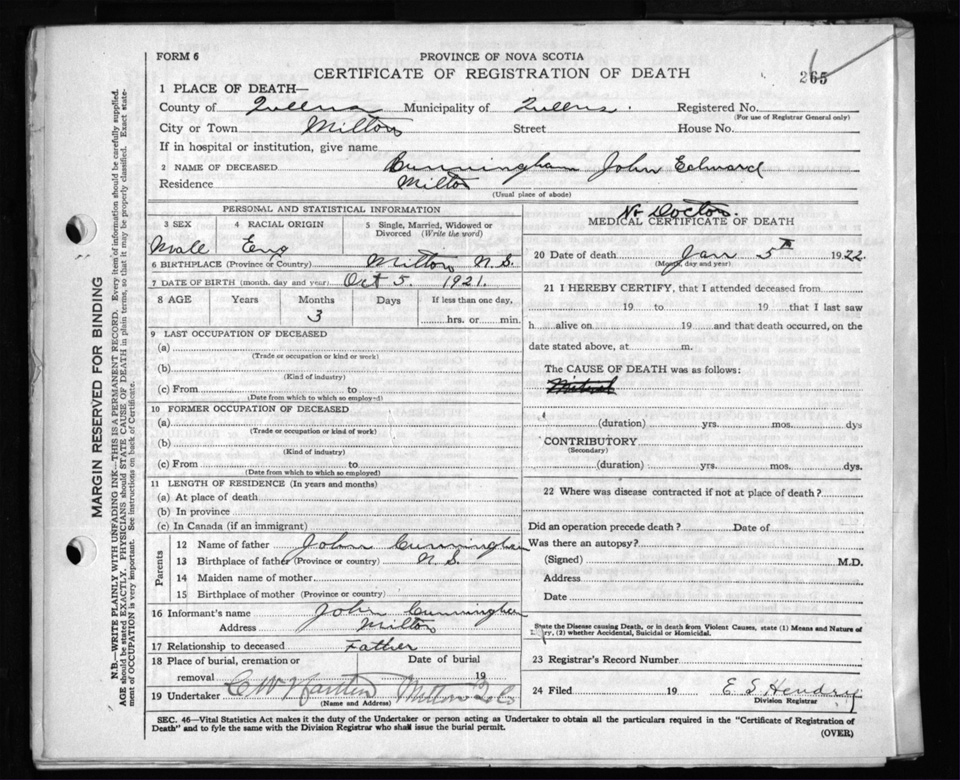 FORM 6
PROVINCE OF NOVA SCOTIA
CERTIFICATE OF REGISTRATION OF DEATH
265
1 PLACE OF DEATH—
County of Queens Municipality of Queens Registered No.
(For use of Registrar General only)
City or Town Milton Street House No.
If in hospital or institution, give name
2 NAME OF DECEASED Cunningham John Edward
Residence Milton
(Usual place of abode)
PERSONAL AND STATISTICAL INFORMATION
3 SEX 4 RACIAL ORIGIN 5 Single, Married, Widowed or Divorced (Write the word)
Male Eng
6 BIRTHPLACE (Province or Country) Milton N.S.
7 DATE OF BIRTH (month, day and year) Oct 5. 1921.
8 AGE Years Months Days If less than one day,
3 hrs. or min.
9 LAST OCCUPATION OF DECEASED
(a)
(Trade or occupation or kind or work)
(b)
(Kind of industry)
(c) From to
(Date from which to which so employed)
10 FORMER OCCUPATION OF DECEASED
(a)
(Trade or occupation or kind of work)
(b)
(Kind of industry)
(c) From to
(Date from which to which so employed)
11 LENGTH OF RESIDENCE (In years and months)
(a) At place of death
(b) In province
(c) In Canada (if an immigrant)
Parents
12 Name of father John Cunningham
13 Birthplace of father (Province or country) N.S.
14 Maiden name of mother
15 Birthplace of mother (Province or country)
16 Informant's name John Cunningham
Address Milton
17 Relationship to deceased Father
18 Place of burial, cremation or removal Date of burial
19
19 Undertaker Milton
(Name and Address)
No Doctor.
MEDICAL CERTIFICATE OF DEATH
20 Date of death Jan 5th 1922.
(Month, day and year)
21 I HEREBY CERTIFY, that I attended deceased from
19 to 19 that I last saw
h alive on 19 and that death occurred, on the
date stated above, at m.
The CAUSE OF DEATH was as follows:
(duration) yrs. mos. dys
CONTRIBUTORY
(Secondary)
(duration) yrs. mos. dys.
22 Where was disease contracted if not at place of death?
Did an operation precede death? Date of
Was there an autopsy?
(Signed) M.D.
Address
Date
State the Disease causing Death, or in death from Violent Causes, state (1) Means and Nature of
ry, (2) whether Accidental, Suicidal or Homicidal.
23 Registrar's Record Number
24 Filed 19 E S Hendry
Division Registrar
SEC. 46—Vital Statistics Act makes it the duty of the Undertaker or person acting as Undertaker to obtain all the particulars required in the "Certificate of Registration of
Death" and to fyle the same with the Division Registrar who shall issue the burial permit.
(OVER)
MARGIN RESERVED FOR BINDING
N.B.—WRITE PLAINLY WITH UNFADING INK—THIS IS A PERMANENT RECORD. Every item of information should be carefully supplied.
AGE should be stated EXACTLY. PHYSICIANS should STATE CAUSE OF DEATH in plain terms, so that it may be properly classified. Exact state-
ment of OCCUPATION is very important. See instructions on back of Certificate.